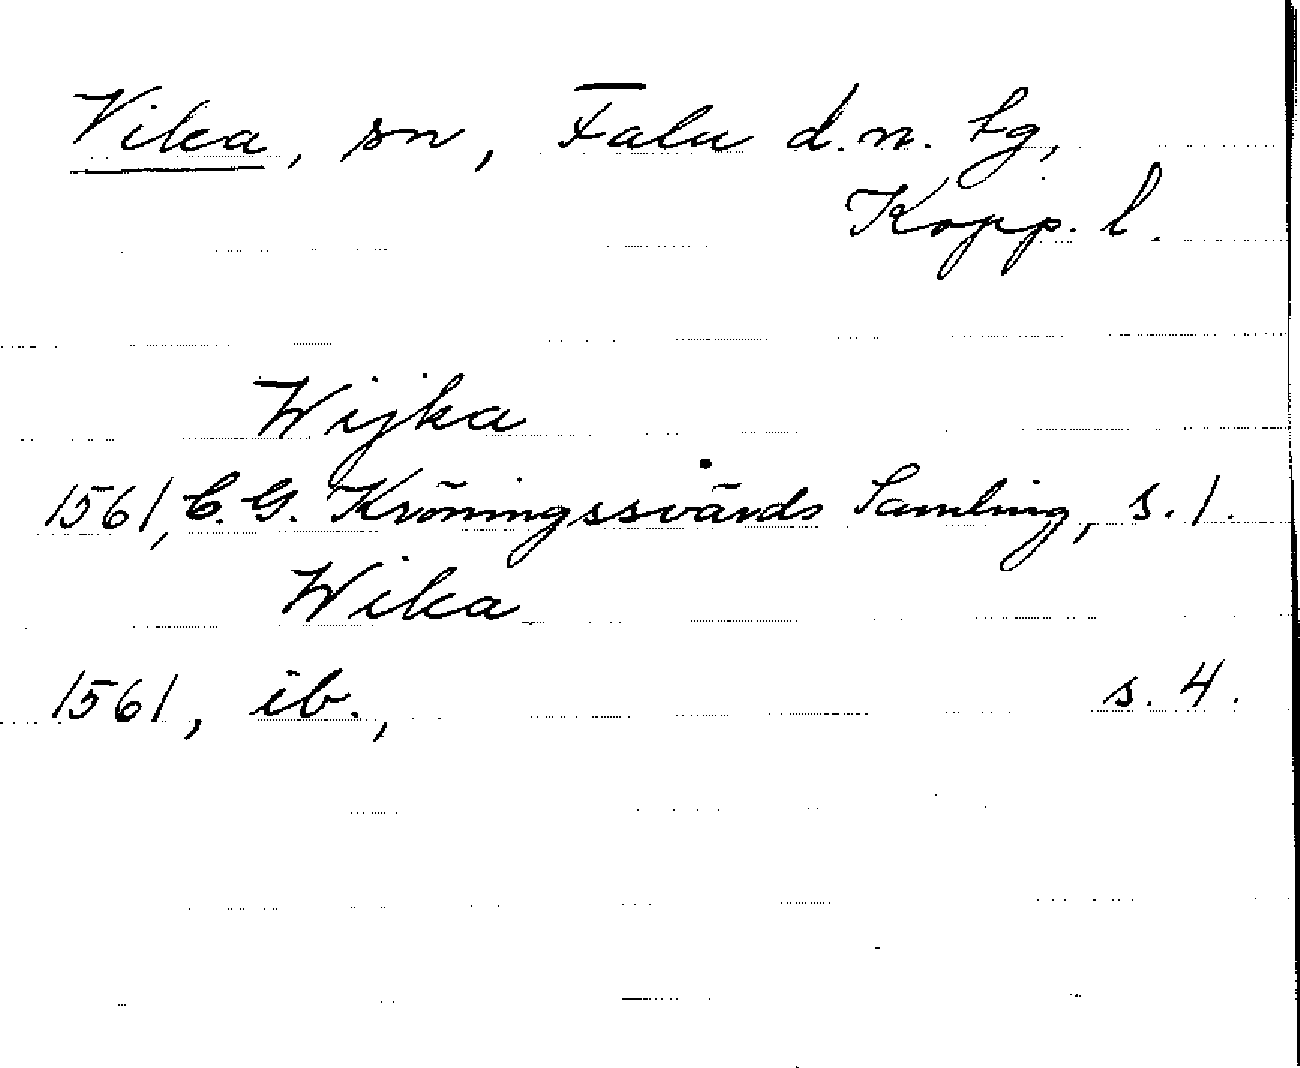 Vika, sn, Falu d.n. lg,
Kopp. l.
Wijka
1561, C. G. Kröningssvärds Samling, s. 1.
Wika
1561, ib., s. 4.